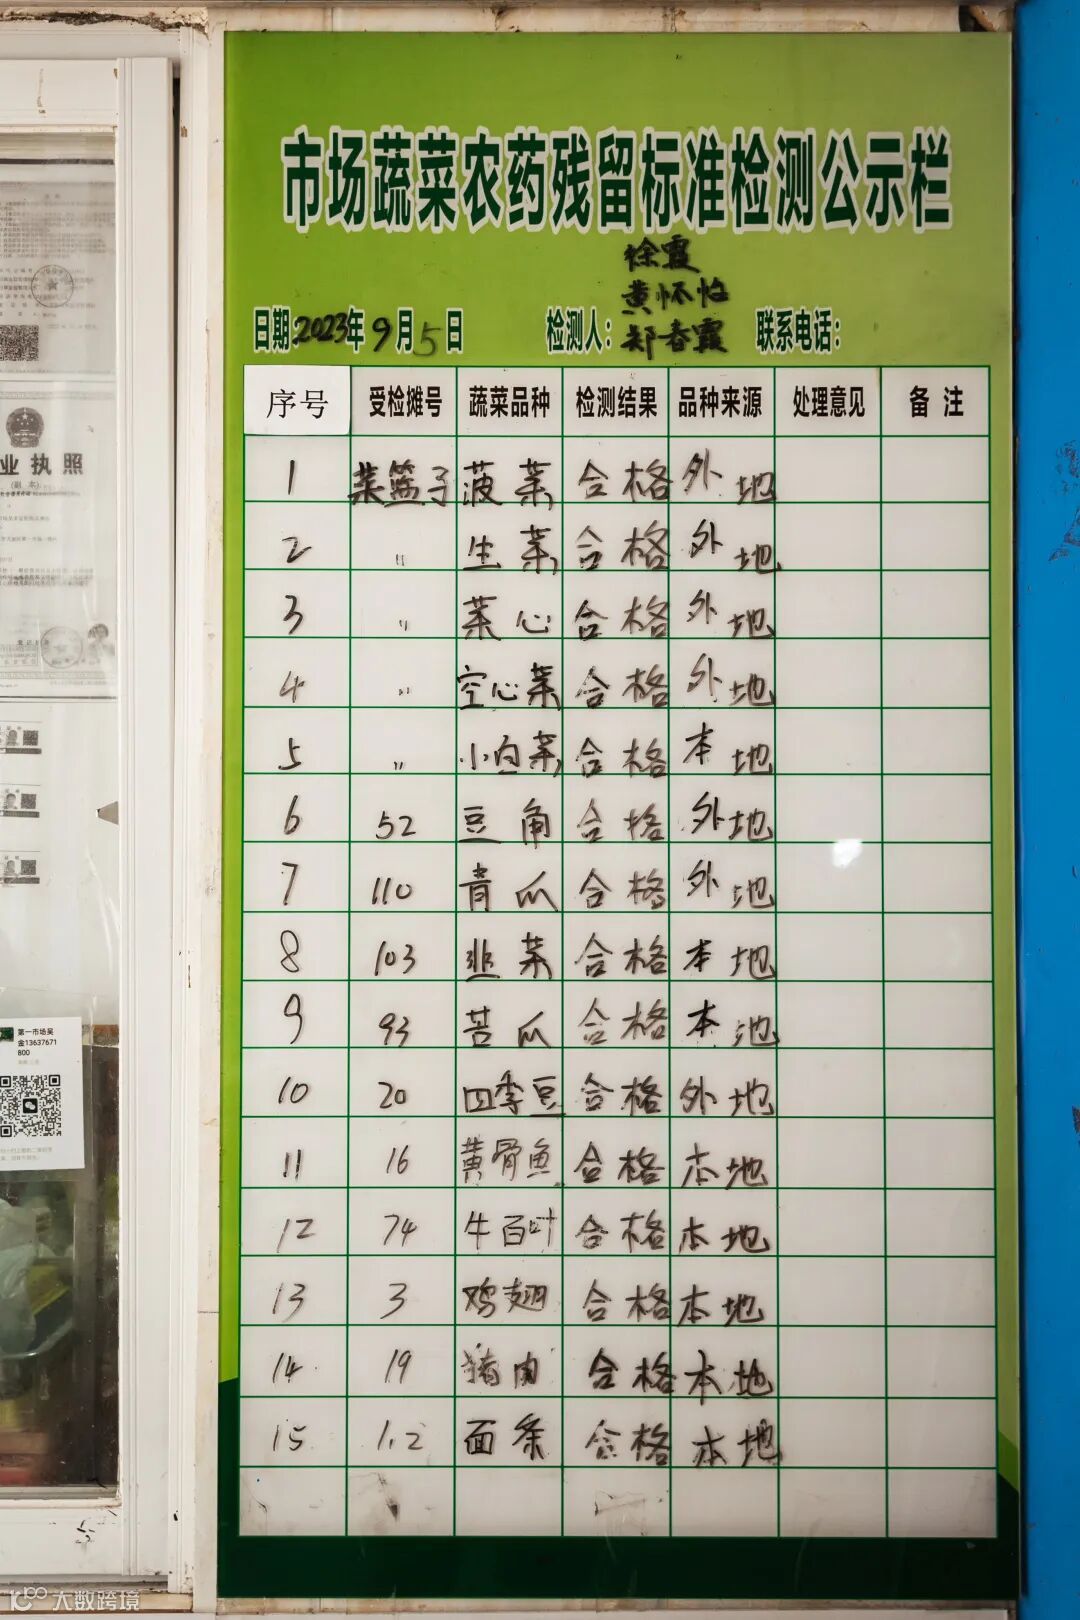 市场蔬菜农药残留标准检测公示栏
徐霞
黄怀怡
日期:2023年9月5日 检测人: 郑春霞 联系电话:
序号 受检摊号 蔬菜品种 检测结果 品种来源 处理意见 备注
1 菜篮子 菠菜 合格 外地
2 〃 生菜 合格 外地
3 〃 菜心 合格 外地
4 〃 空心菜 合格 外地
5 〃 小白菜 合格 本地
6 52 豆角 合格 外地
7 110 青瓜 合格 外地
8 103 韭菜 合格 本地
9 93 苦瓜 合格 本地
10 20 四季豆 合格 外地
11 16 黄骨鱼 合格 本地
12 74 牛百叶 合格 本地
13 3 鸡翅 合格 本地
14 19 猪肉 合格 本地
15 1.2 面条 合格 本地
业执照
(副本)
第一市场吴
金13637671
800
大数跨境